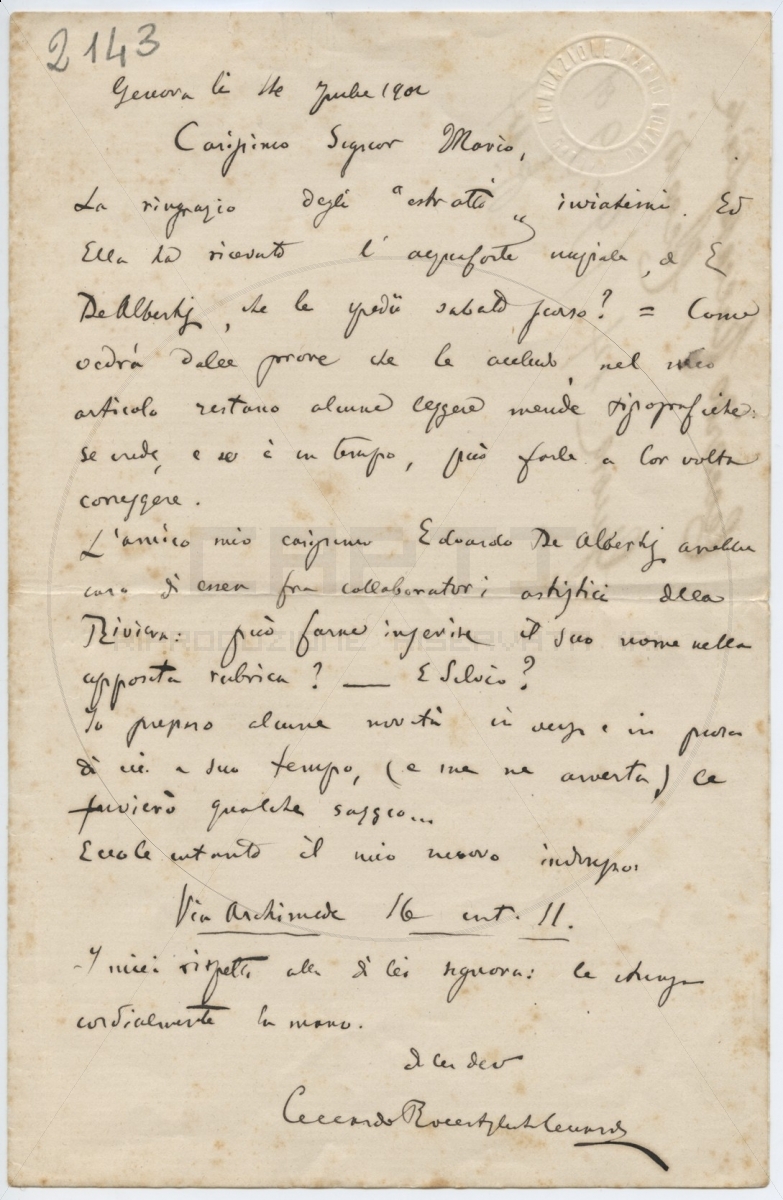 2143
FONDAZIONE MARIO NOVARO
Genova li 1901
Carissimo Signor Mario,
La ringrazio degli "estratti" inviatimi. Ed
Ella ha ricevuto l'acquaforte nuziale, di E
De Albertis, che le spedii sabato scorso? = Come
vedrà dalle prove che le accludo, nel mio
articolo restano alcune leggere mende tipografiche:
se crede, e se è in tempo, può farle a lor volta
correggere.
L'amico mio carissimo Edoardo De Albertis avrebbe
caro di esser fra collaboratori artistici della
Riviera: può farne inserire il suo nome nella
apposita rubrica? — E Silvio?
Io preparo alcune novità in versi e in prosa
di cui a suo tempo, (e me ne avverta) Le
invierò qualche saggio...
Eccole intanto il mio nuovo indirizzo:
Via Archimede 16 int. 11.
I miei rispetti alla di lei signora: le stringo
cordialmente la mano.
di lei dev
Ceccardo Roccatagliata Ceccardi